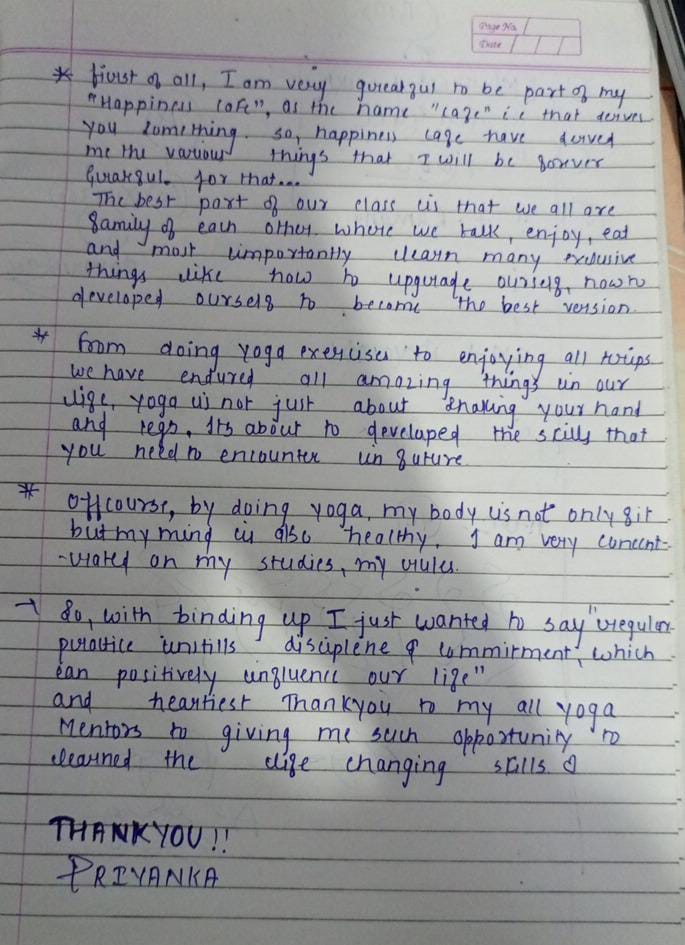 Page No.
Date
* first of all, I am very greatful to be part of my
"Happiness Cafe", as the name "cafe" i.e that serves
you something. so, happiness cafe have served
me the various things that I will be forever
Gratful. for that...
The best part of our class is that we all are
family of each other. where we talk, enjoy, eat
and most importantly learn many exclusive
things like how to upgrade ourself, how to
developed ourself to become the best version.
* from doing yoga exercises to enjoying all trips
we have endured all amazing things in our
life, yoga is not just about shaking your hand
and legs, Its about to developed the skills that
you need to encounter in future.
* Offcourse, by doing yoga, my body is not only fit
but my mind is also healthy. I am very concent-
-rated on my studies, my rules.
→ So, with binding up I just wanted to say "regular
practice instills disciplene & commitment, which
can positively influence our life"
and heartiest Thankyou to my all yoga
Mentors to giving me such opportunity to
learned the life changing skills. ♡
THANKYOU!!
PRIYANKA